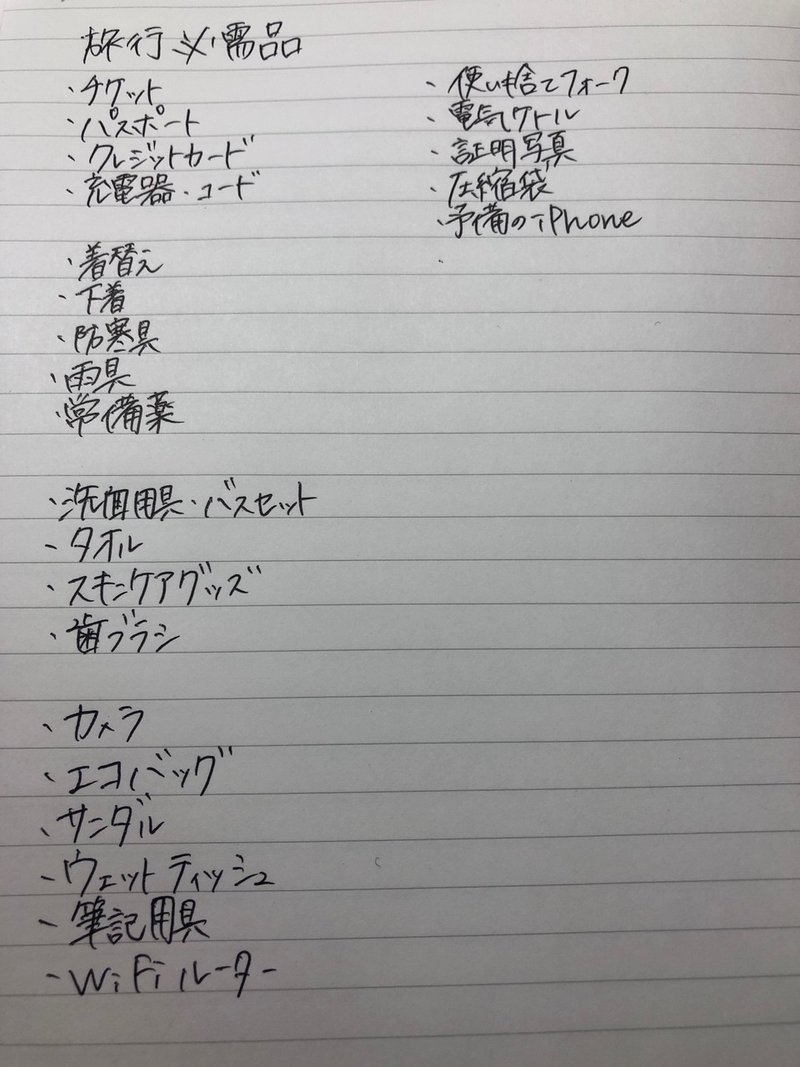 旅行必需品
・チケット
・パスポート
・クレジットカード
・充電器・コード
・着替え
・下着
・防寒具
・雨具
・常備薬
・洗面用具・バスセット
・タオル
・スキンケアグッズ
・歯ブラシ
・カメラ
・エコバッグ
・サンダル
・ウェットティッシュ
・筆記用具
・WiFiルーター
・使い捨てフォーク
・電気ケトル
・証明写真
・圧縮袋
・予備のiPhone
・